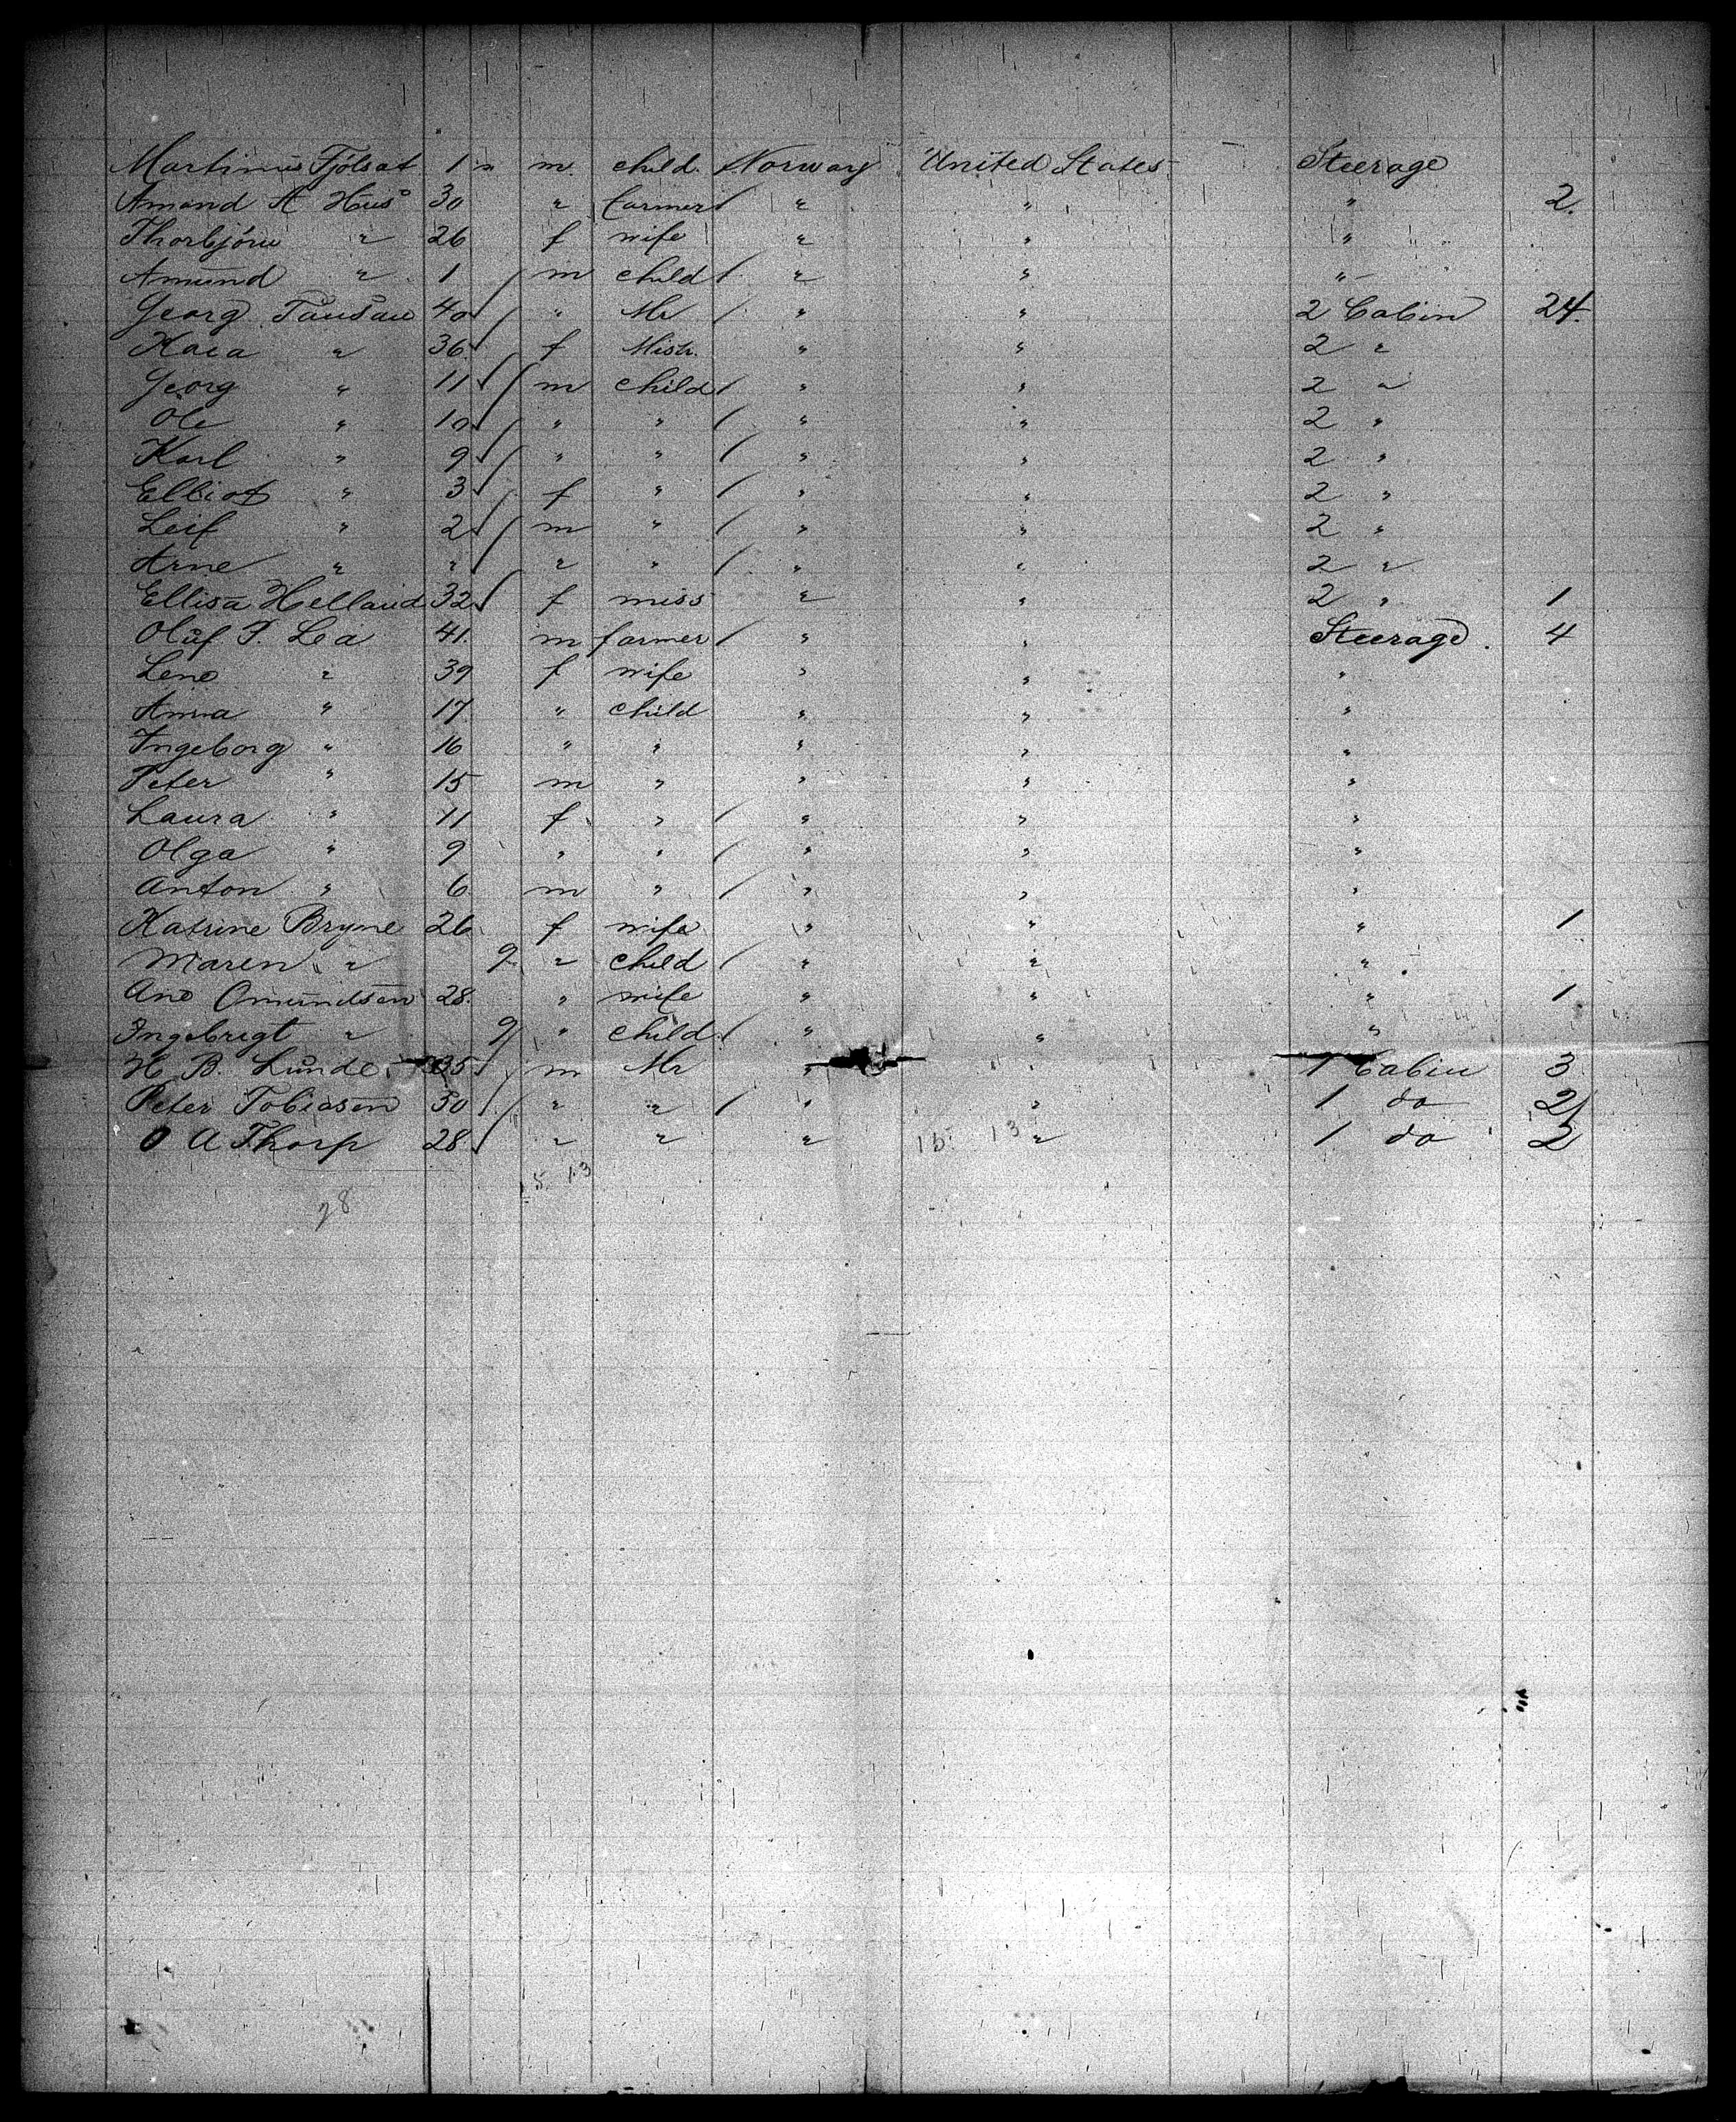 Martinus Tjölsat 1 m child Norway United States Steerage
Amand A Hus 30 " farmer " " " 2.
Thorbjörn " 26 f wife " " "
Amund " 1 m child " " "
Georg Tausan 40 " Mr " " 2 Cabin 24.
Kaia " 36 f Mistr. " " 2 "
Georg " 11 m child " " 2 "
Ole " 10 " " " " 2 "
Karl " 9 " " " " 2 "
Elliot " 3 f " " " 2 "
Leif " 2 m " " " 2 "
Arne " " " " " " 2 "
Ellisa Helland 32 f miss " " 2 " 1
Oluf P. Lea 41. m farmer " " Steerage. 4
Lene " 39 f wife " " "
Anna " 17 " child " " "
Ingeborg " 16 " " " " "
Peter " 15 m " " " "
Laura " 11 f " " " "
Olga " 9 " " " " "
Anton " 6 m " " " "
Katrine Bryne 26 f wife " " " 1
Maren " 9 " child " " "
Ane Omundsen 28. " wife " " " 1
Ingebrigt " 9 " child " " "
H. B. Lunde 35 m Mr " " 1 Cabin 3
Peter Tobiasen 30 " " " " 1 do 2
O A Thorp 28 " " " 15 13 " 1 do 2
15 13
28